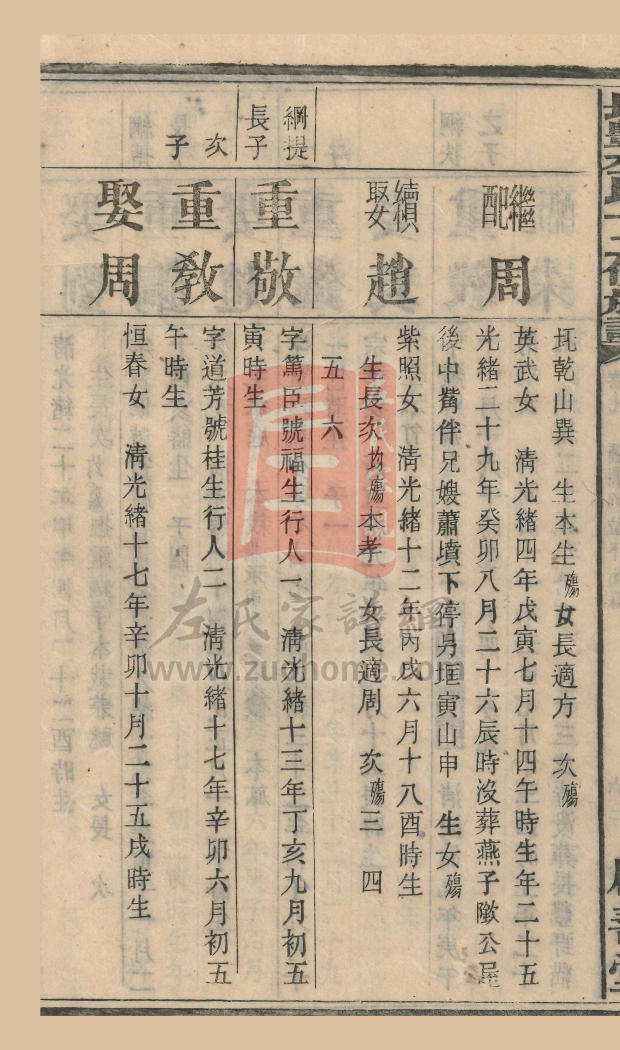 圫乾山巽 生本生殤女長適方三次殤
繼配周
英武女 清光緒四年戊寅七月十四午時生年二十五
光緒二十九年癸卯八月二十六辰時沒葬燕子墩公屋
後中觜伴兄嫂蕭墳下停另堆寅山申 生女殤
續娶趙
紫照女 清光緒十二年丙戌六月十八酉時生
生長次均殤本孝 女長適周 次殤三 四
五 六
綱提長子
重敬
字篤臣號福生行人一 清光緒十三年丁亥九月初五
寅時生
次子
重敎
字道芳號桂生行人二 清光緒十七年辛卯六月初五
午時生
娶周
恒春女 清光緒十七年辛卯十月二十五戌時生
左氏家譜網
www.zuohome.com